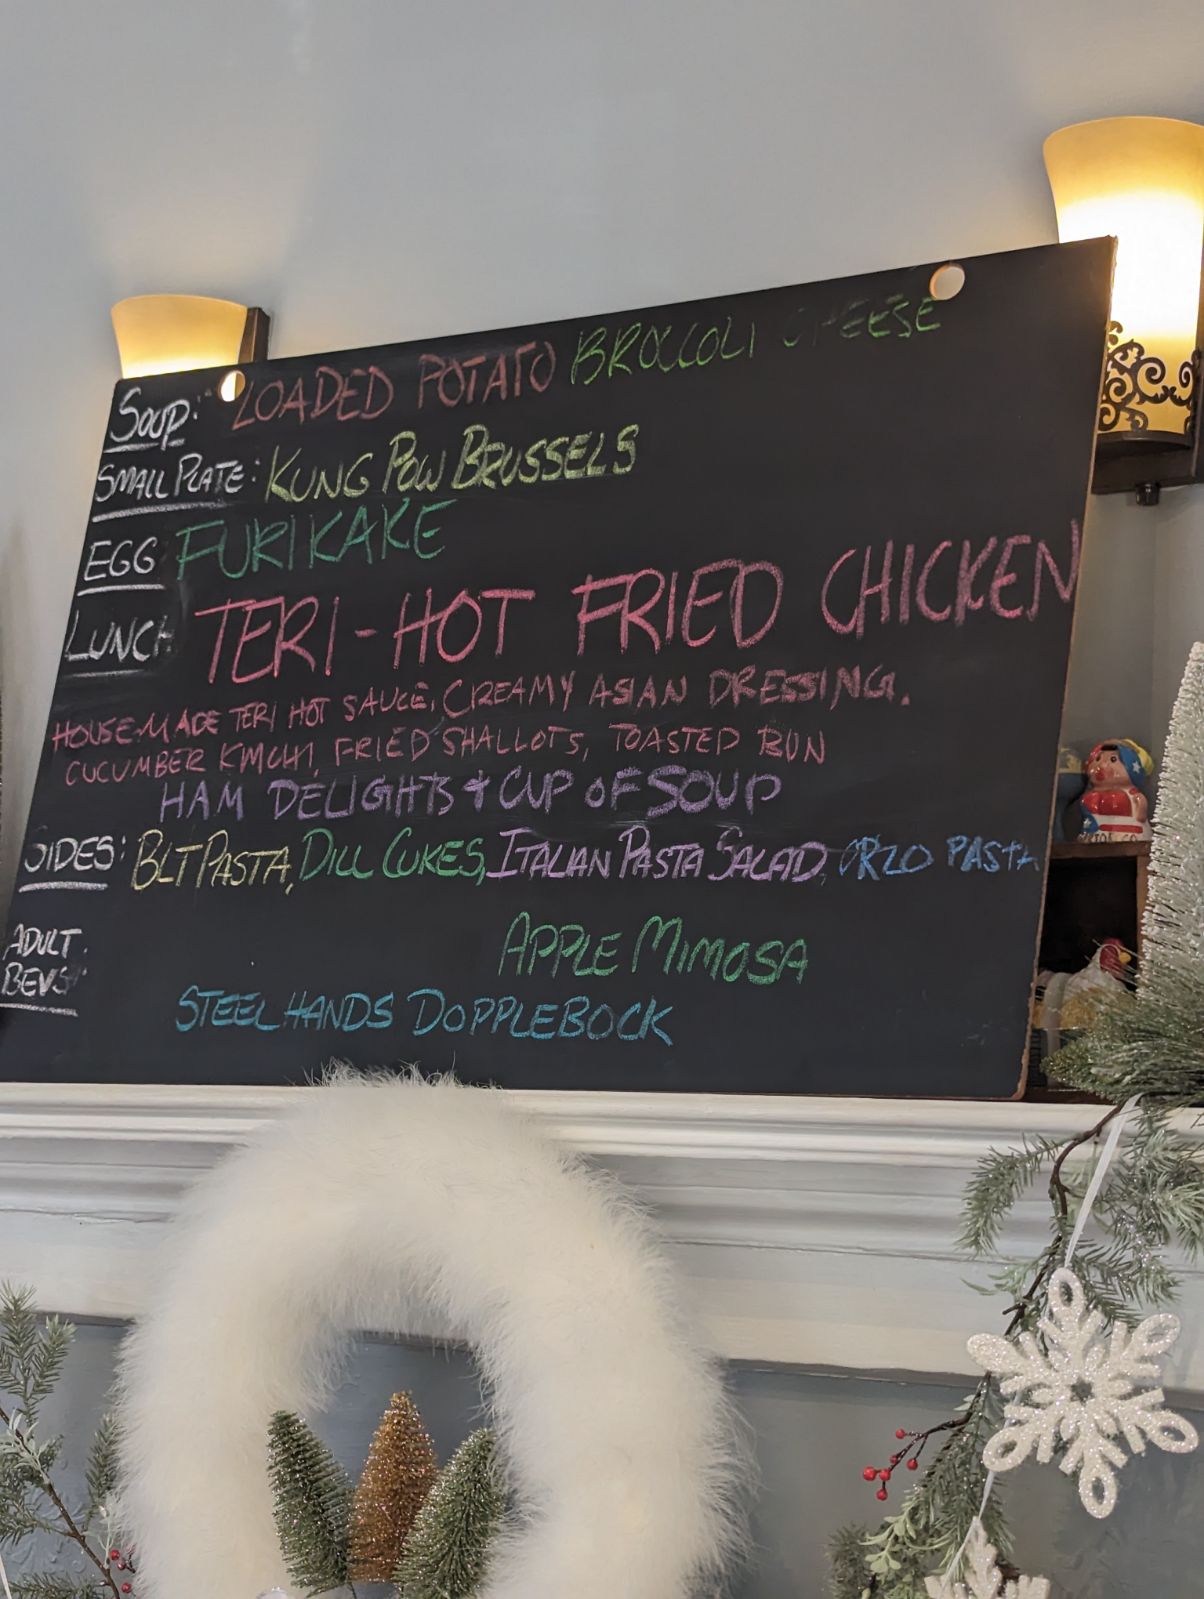 SOUP: LOADED POTATO BROCCOLI CHEESE
SMALL PLATE: KUNG POW BRUSSELS
EGG FURIKAKE
LUNCH TERI-HOT FRIED CHICKEN
HOUSE-MADE TERI HOT SAUCE, CREAMY ASIAN DRESSING.
CUCUMBER KIMCHI, FRIED SHALLOTS, TOASTED BUN
HAM DELIGHTS & CUP OF SOUP
SIDES: BLT PASTA, DILL CUKES, ITALIAN PASTA SALAD, ORZO PASTA
ADULT
BEVS:
APPLE MIMOSA
STEEL HANDS DOPPLEBOCK